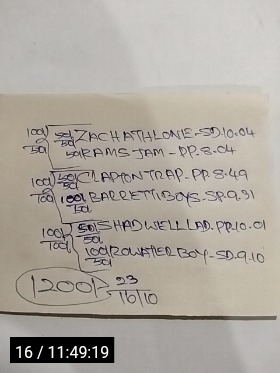 100/50 50/50 ZACHATHLONIE-SD.10.04
50 RAMS JAM - PP.8.04
100/100 50/50 CLAPTON TRAP-PP.8.49
100/50 BARRETTI BOYS-SP.9.31
100/100 50/50 SHADWELL LAD.PP.10.01
100/50 ROWATER BOY-SD.9.10
1200/ 23
16/10
16 / 11:49:19